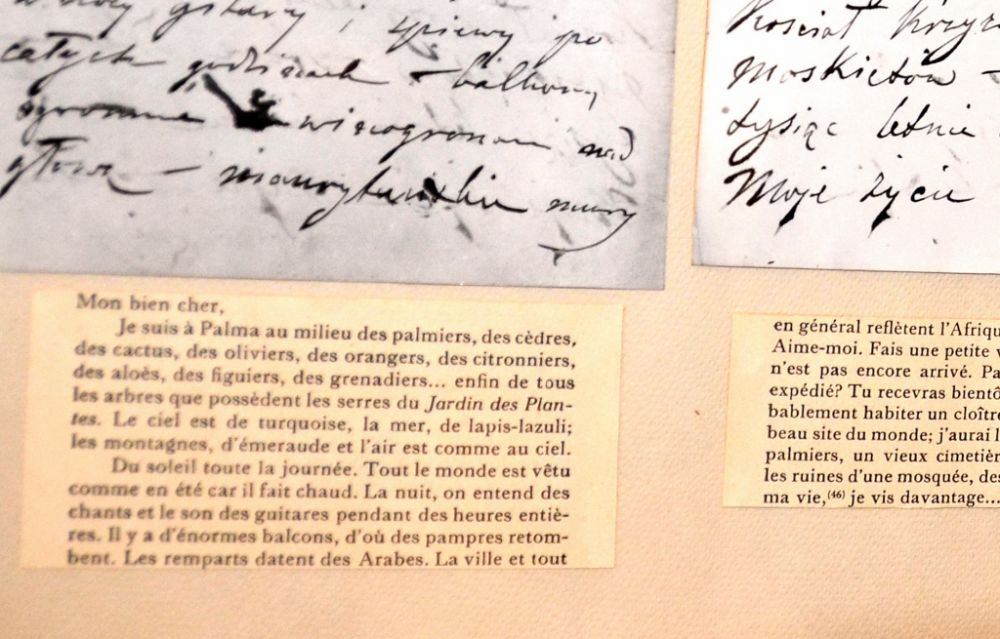 w nocy gitary i śpiewy po
całych godzinach – balkony
ogromne z winogronami nad
głową – maurytańskie mury
Kościół
Moskietów –
tysiąc letnie
Moje życie
Mon bien cher,
Je suis à Palma au milieu des palmiers, des cèdres,
des cactus, des oliviers, des orangers, des citronniers,
des aloès, des figuiers, des grenadiers... enfin de tous
les arbres que possèdent les serres du Jardin des Plan-
tes. Le ciel est de turquoise, la mer, de lapis-lazuli;
les montagnes, d'émeraude et l'air est comme au ciel.
Du soleil toute la journée. Tout le monde est vêtu
comme en été car il fait chaud. La nuit, on entend des
chants et le son des guitares pendant des heures entiè-
res. Il y a d'énormes balcons, d'où des pampres retom-
bent. Les remparts datent des Arabes. La ville et tout
en général reflètent l'Afriqu
Aime-moi. Fais une petite v
n'est pas encore arrivé. Pa
expédié? Tu recevras bientô
bablement habiter un cloître
beau site du monde; j'aurai l
palmiers, un vieux cimetièr
les ruines d'une mosquée, des
ma vie,(46) je vis davantage...